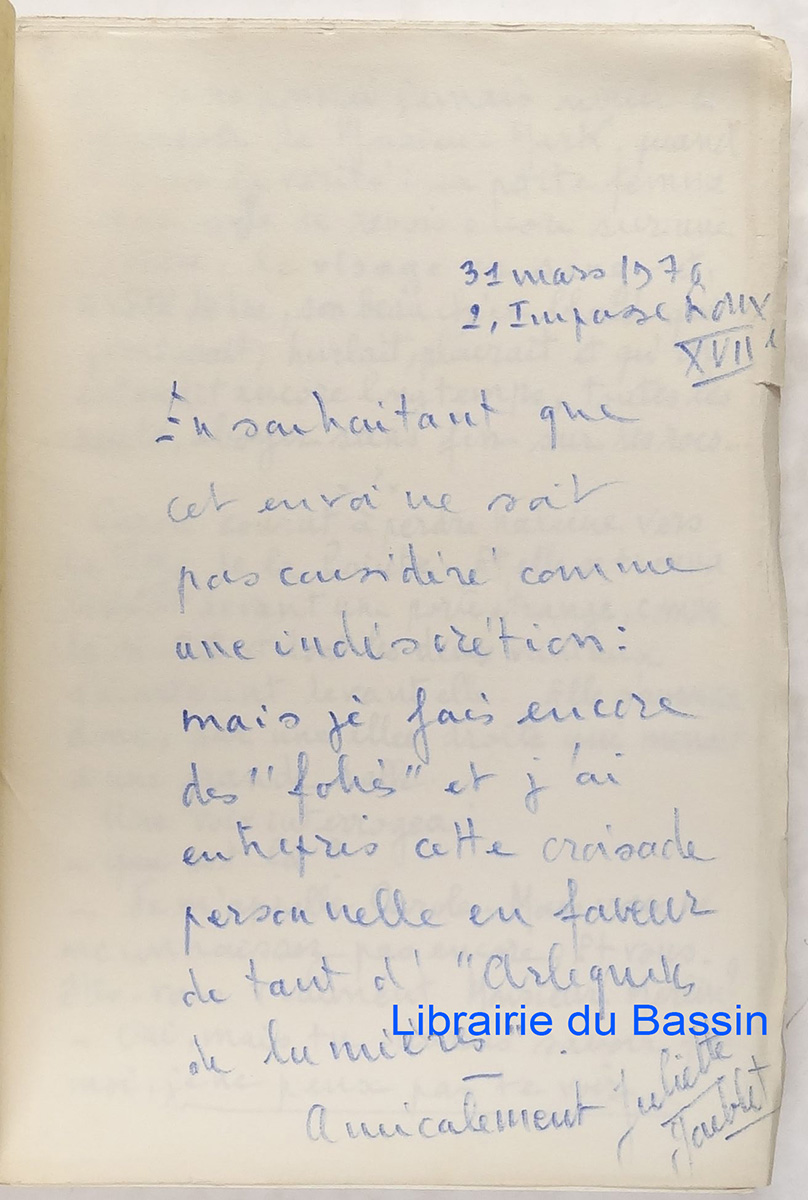 31 mars 1976
2, Impasse Roux
XVII
En souhaitant que
cet envoi ne soit
pas considéré comme
une indéscrétion:
mais je fais encore
des "folies" et j'ai
entrepris cette croisade
personnelle en faveur
de tant d' "Arlequins
Librairie du Bassin
de lumières".
Amicalement Juliette